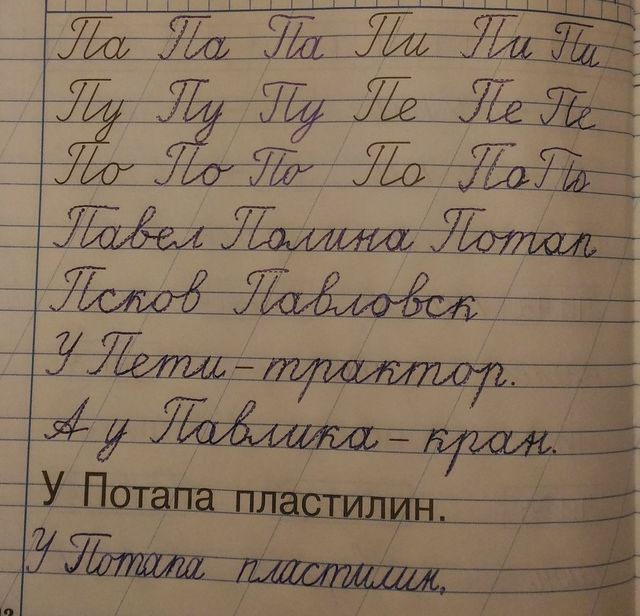 Па Па Па Пи Пи Пи
Пу Пу Пу Пе Пе Пе
По По По По По По
Павел Полина Потап
Псков Павловск
У Пети – трактор.
А у Павлика – кран.
У Потапа пластилин.
У Потапа пластилин.